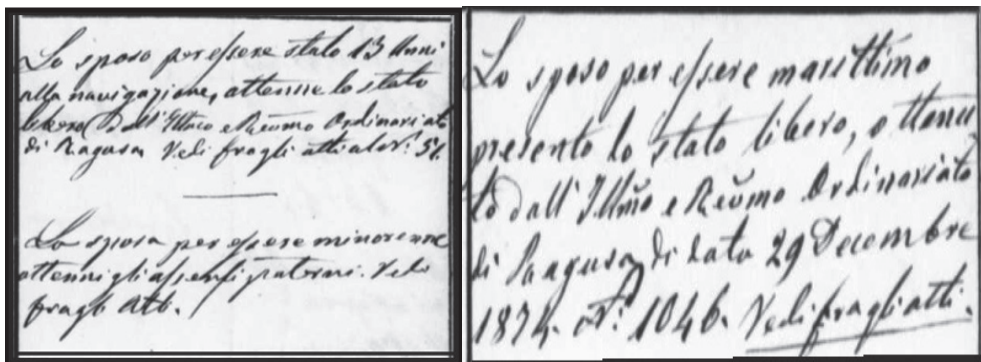 Lo sposo per essere stato 13 Anni
alla navigazione, ottenne lo stato
libero dall' Illmo e Reumo Ordinariato
di Ragusa Vedi fragli atti al Nr: 51.
La sposa per essere minorenne
ottenni gli assensi paterni. Vedi
fragli Atti.
Lo sposo per essere marittimo
presento lo stato libero, ottenu
to dall' Illmo e Reumo Ordinariato
di Ragusa, di data 29 Decembre
1874. Nr: 1046. Vedi fragli atti.